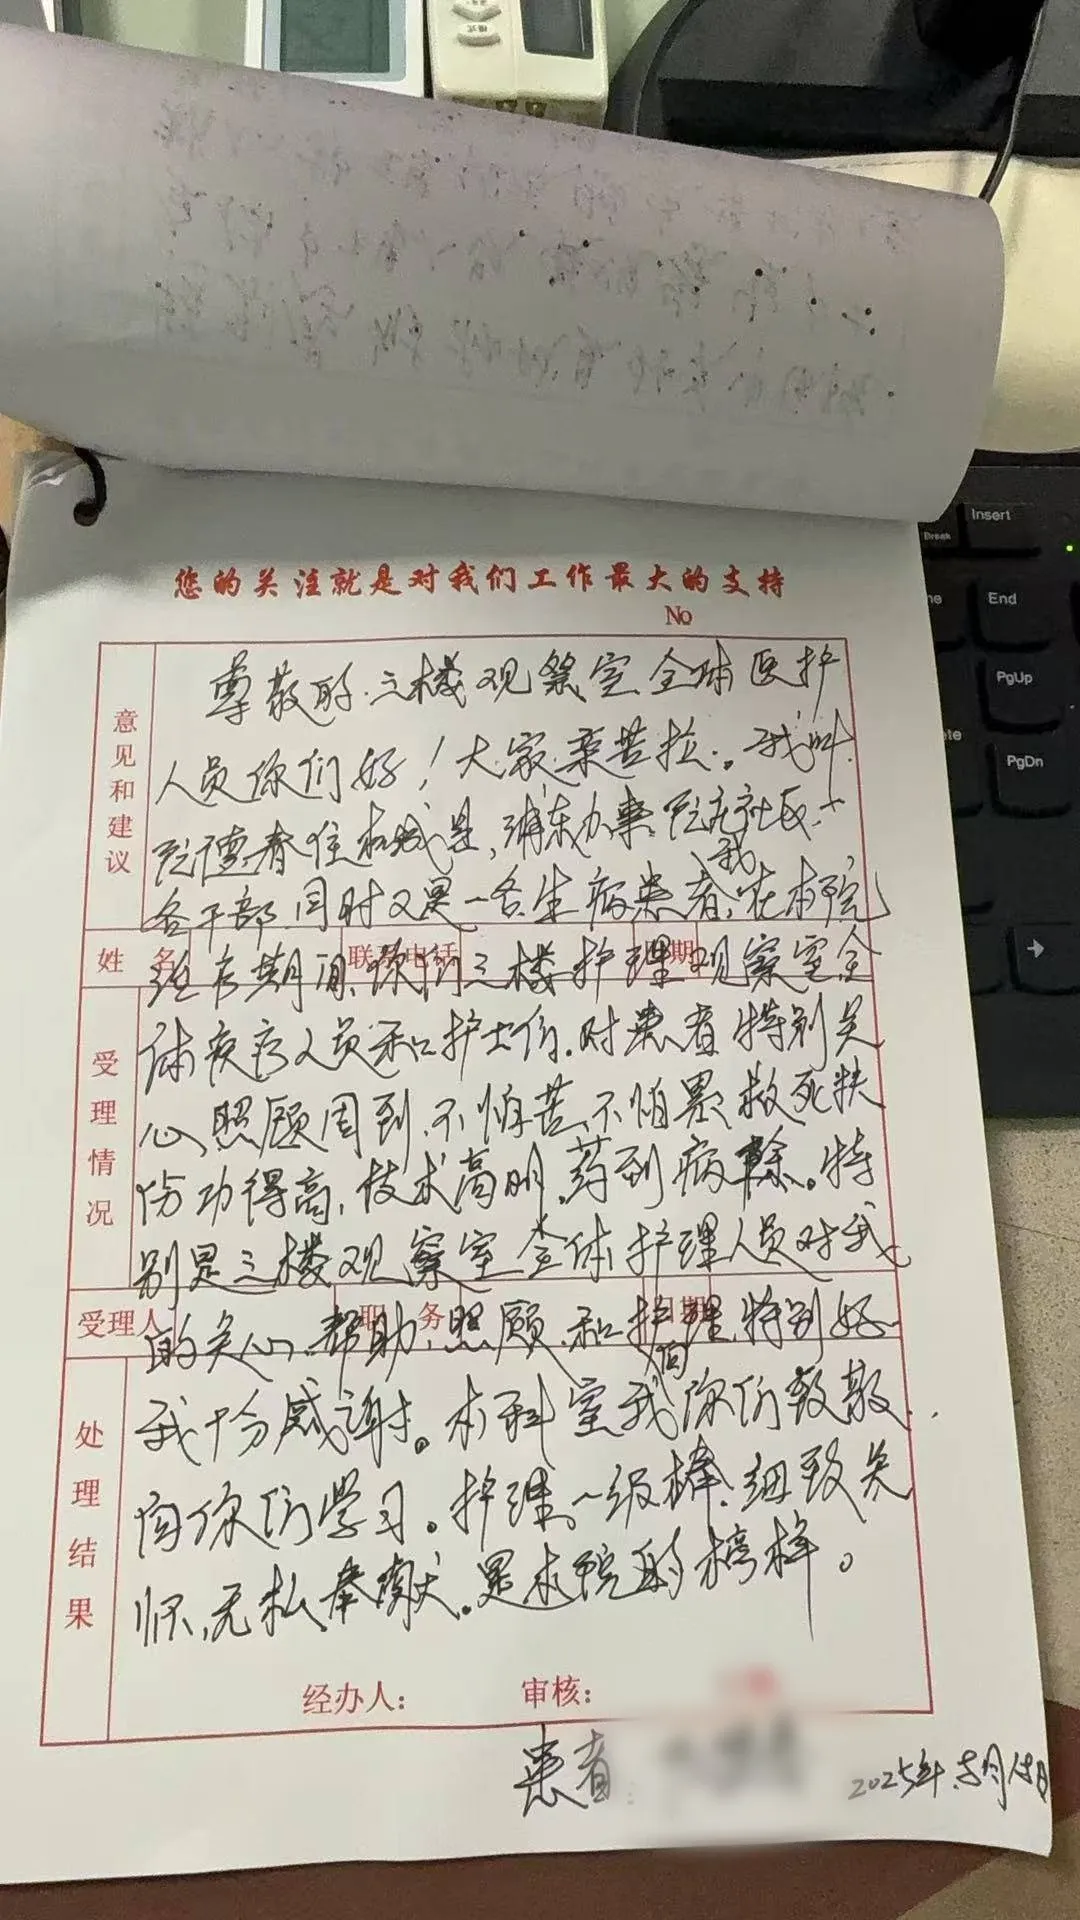 您的关注就是对我们工作最大的支持
No
意见和建议
尊敬的三楼观察室全体医护
人员你们好！大家辛苦拉。我叫
德春住 是，浦东办事 社区一
名干部同时又是一名生病患者，我在本院
姓名 联系电话 日期
期间，你们三楼护理观察室全
受理情况
体医疗人员和护士们。对患者特别关
心、照顾周到、不怕苦、不怕累救死扶
伤功得高，技术高明，药到病除。特
别是三楼观察室全体护理人员对我
受理人 职务 日期
的关心、帮助、照顾、和护理特别好
处理结果
我十分感谢。本科室我向你们致敬
向你们学习。护理一级棒，细致关
怀，无私奉献。是本院的榜样。
经办人： 审核：
患者：
2025年 月 日
Insert
Break
End
PgUp
PgDn